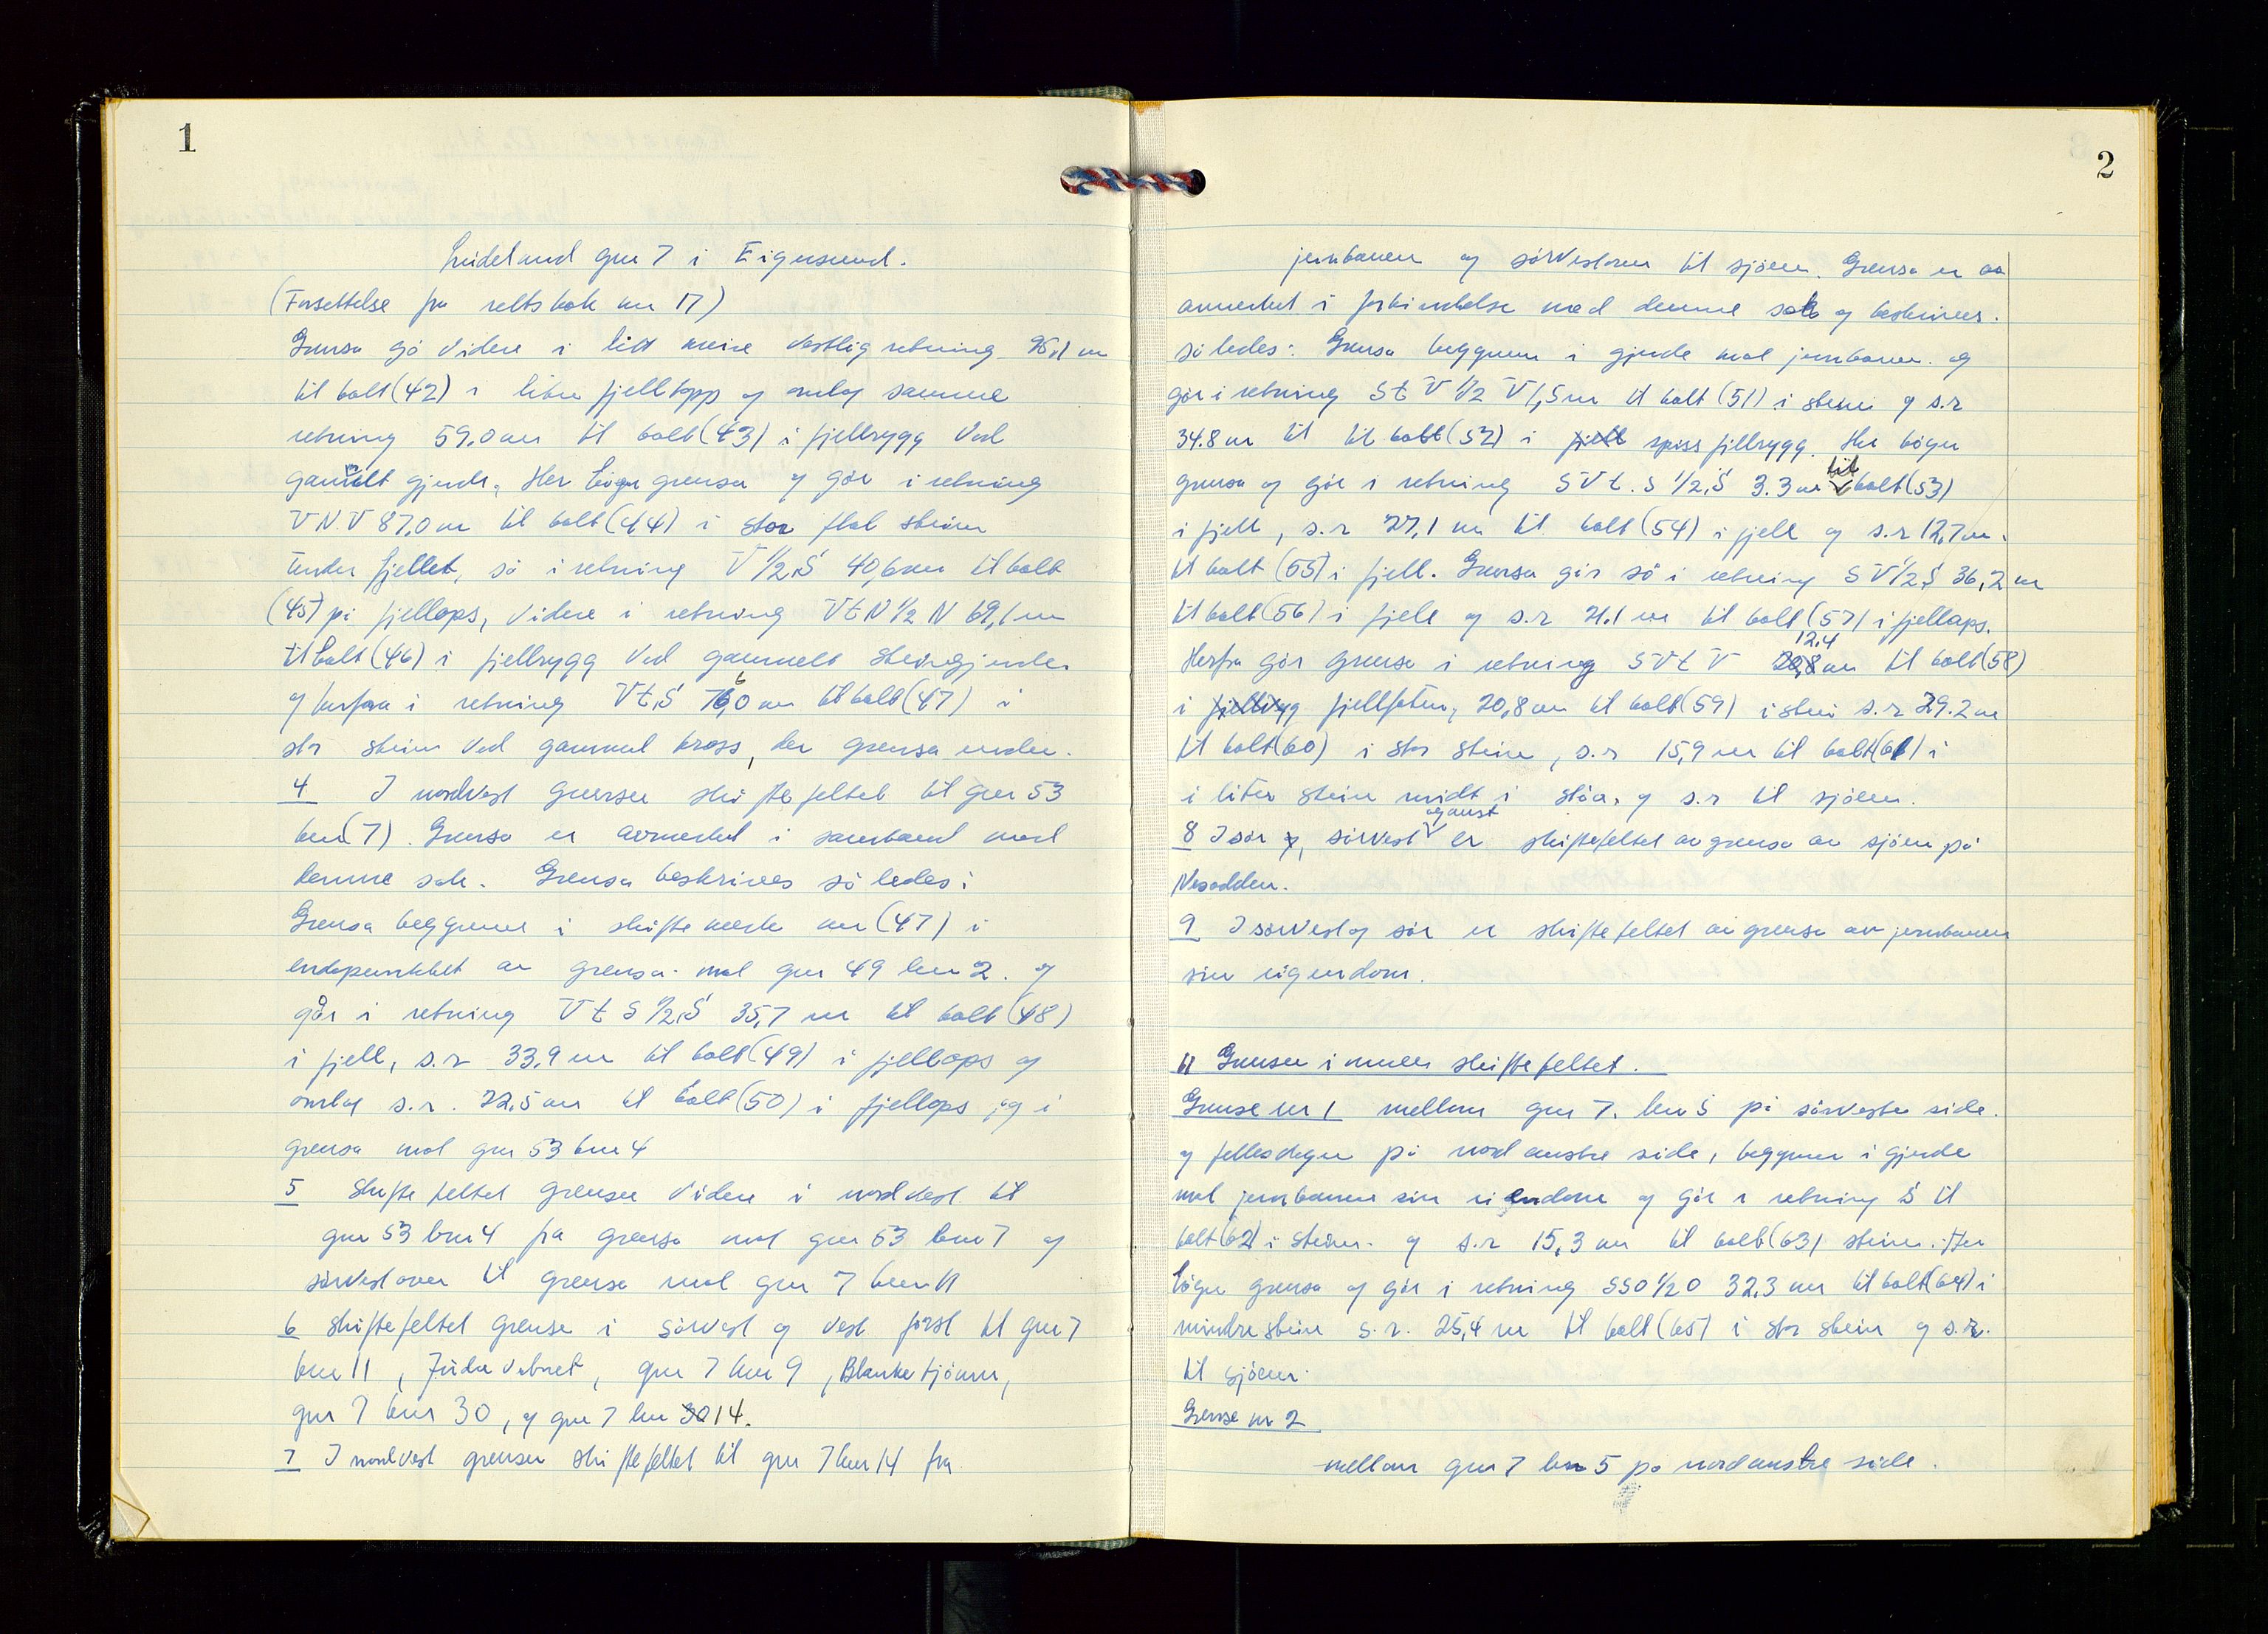 1
Leidland gnr 7 i Eigersund.
(Forsettelse fra rettsbok nr 17)
Grensa gå videre i litt meire vestlig retning m
til bolt (42) i liten fjelltopp og omlag samme
retning 59,0 m til bolt (43) i fjellrygg ved
gamalt gjerde. Her bøger grensa og går i retning
V N.V 87,0 m til bolt (44) i stor flat stein
under fjellet, så i retning V 1/2 S 40,6 m til bolt
(45) på fjellops, videre i retning V t N 1/2 N 69,1 m
til bolt (46) i fjellrygg ved gammelt steingjerde
og herfra i retning V t S 76,0 m til bolt (47) i
str stein ved gammel kross, der grensa ender.
4 I nordvest grenser skiftefeltet til gnr 53
bnr (7). Grensa er avmerket i samband med
denne sak. Grensa beskrives så ledes:
Grensa beggynner i skiftemerke nr (47) i
endepunktet av grensa mot gnr 49 bnr 2. og
går i retning V t S 1/2 S 35,7 m til bolt (48)
i fjell, s.r 33,9 m til bolt (49) i fjellops og
omlag s.r. 22,5 m til bolt (50) i fjellops og i
grensa mot gnr 53 bnr 4
5 Skiftefeltet grenser videre i nordvest til
gnr 53 bnr 4 fra grensa mot gnr 53 bnr 7 og
sørvestover til grensa mot gnr 7 bnr 11
6 Skiftefeltet grense i sørvest og vest først til gnr 7
bnr 11, vatnet, gnr 7 bnr 9, Blanketjønn,
gnr 7 bnr 30, og gnr 7 bnr 30 14.
7 I nordvest grenser skiftefeltet til gnr 7 bnr 14 fra
2
jernbanen og sørvestover til sjøen. Grensa er av
avmerket i forbindelse med denne sak og beskrives.
så ledes: Grensa beggynner i gjerde mot jernbanen. og
går i retning S t V 1/2 V 1,5 m til bolt (51) i stein og s.r
34.8 m til til bolt (52) i fjell spiss fjellrygg. Her bøger
grensa og går i retning S V t. S 1/2 S 3.3 m til bolt (53)
i fjell, s.r 27,1 m til bolt (54) i fjell og s.r 12,7 m.
til bolt (55) i fjell. Grensa går så i retning S V 1/2 S 36,2 m
til bolt (56) i fjell og s.r 21.1 m til bolt (57) i fjellops.
Herfra går grensa i retning S V t V 20,8 12,4 m til bolt (58)
i fjellrygg fjellfoten, 20,8 m til bolt (59) i stein s.r 29.2 m
til bolt (60) i stor stein, s.r 15,9 m til bolt (61) i
i liten stein midt i støa, og s.r til sjøen.
8 I sør og, sørvest og aust er skiftefeltet av grensa av sjøen på
Nesodden.
9 I sørvest og sør er skiftefeltet av grensa av jernbanen
sin eigendom.
11 Grenser i mellom skiftefeltet.
Grense nr 1 mellom gnr 7. bnr 5 på sørvestre side.
og på nord austre side, beggynner i gjerde
mot jernbanen sin eiendom og går i retning S til
bolt (62) i stein. og s.r 15,3 m til bolt (63) stein. Her
bøger grensa og går i retning SSO 1/2 O 32,3 m til bolt (64) i
mindre stein s.r. 25,4 m til bolt (65) i stor stein og s.r.
til sjøen.
Grense nr 2
mellom gnr 7 bnr 5 på nordaustre side.